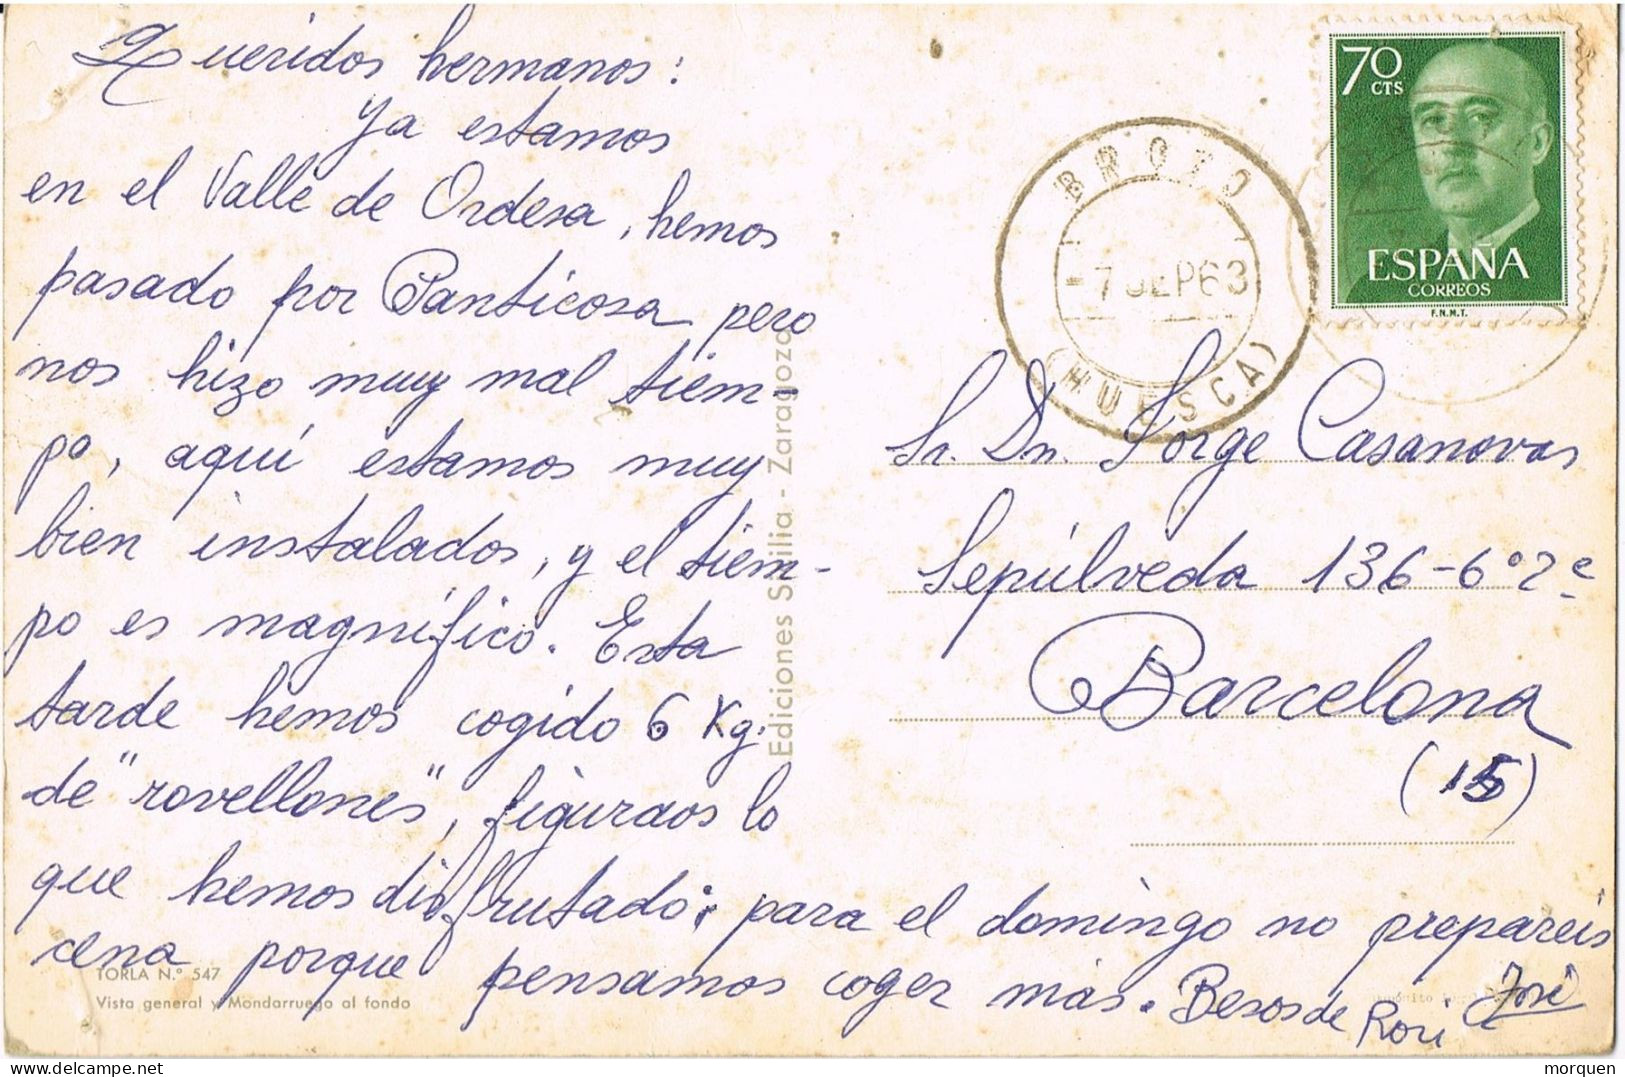 Queridos hermanos:
Ya estamos
en el Valle de Ordesa, hemos
pasado por Panticosa pero
nos hizo muy mal tiem-
po, aquí estamos muy
bien instalados, y el tiem-
po es magnífico. Esta
tarde hemos cogido 6 Kg.
de "rovellones", figuraos lo
que hemos disfrutado; para el domingo no prepareis
cena porque pensamos coger más. Besos de Rori José
TORLA N.º 547
Vista general y Mondarruego al fondo
Ediciones Sicilia - Zaragoza
BROTO
-7 SEP 63
(HUESCA)
70
CTS
ESPAÑA
CORREOS
F.N.M.T.
Sr. Dn. Jorge Casanovas
Sepúlveda 136-6º 2ª
Barcelona
(15)
morquen